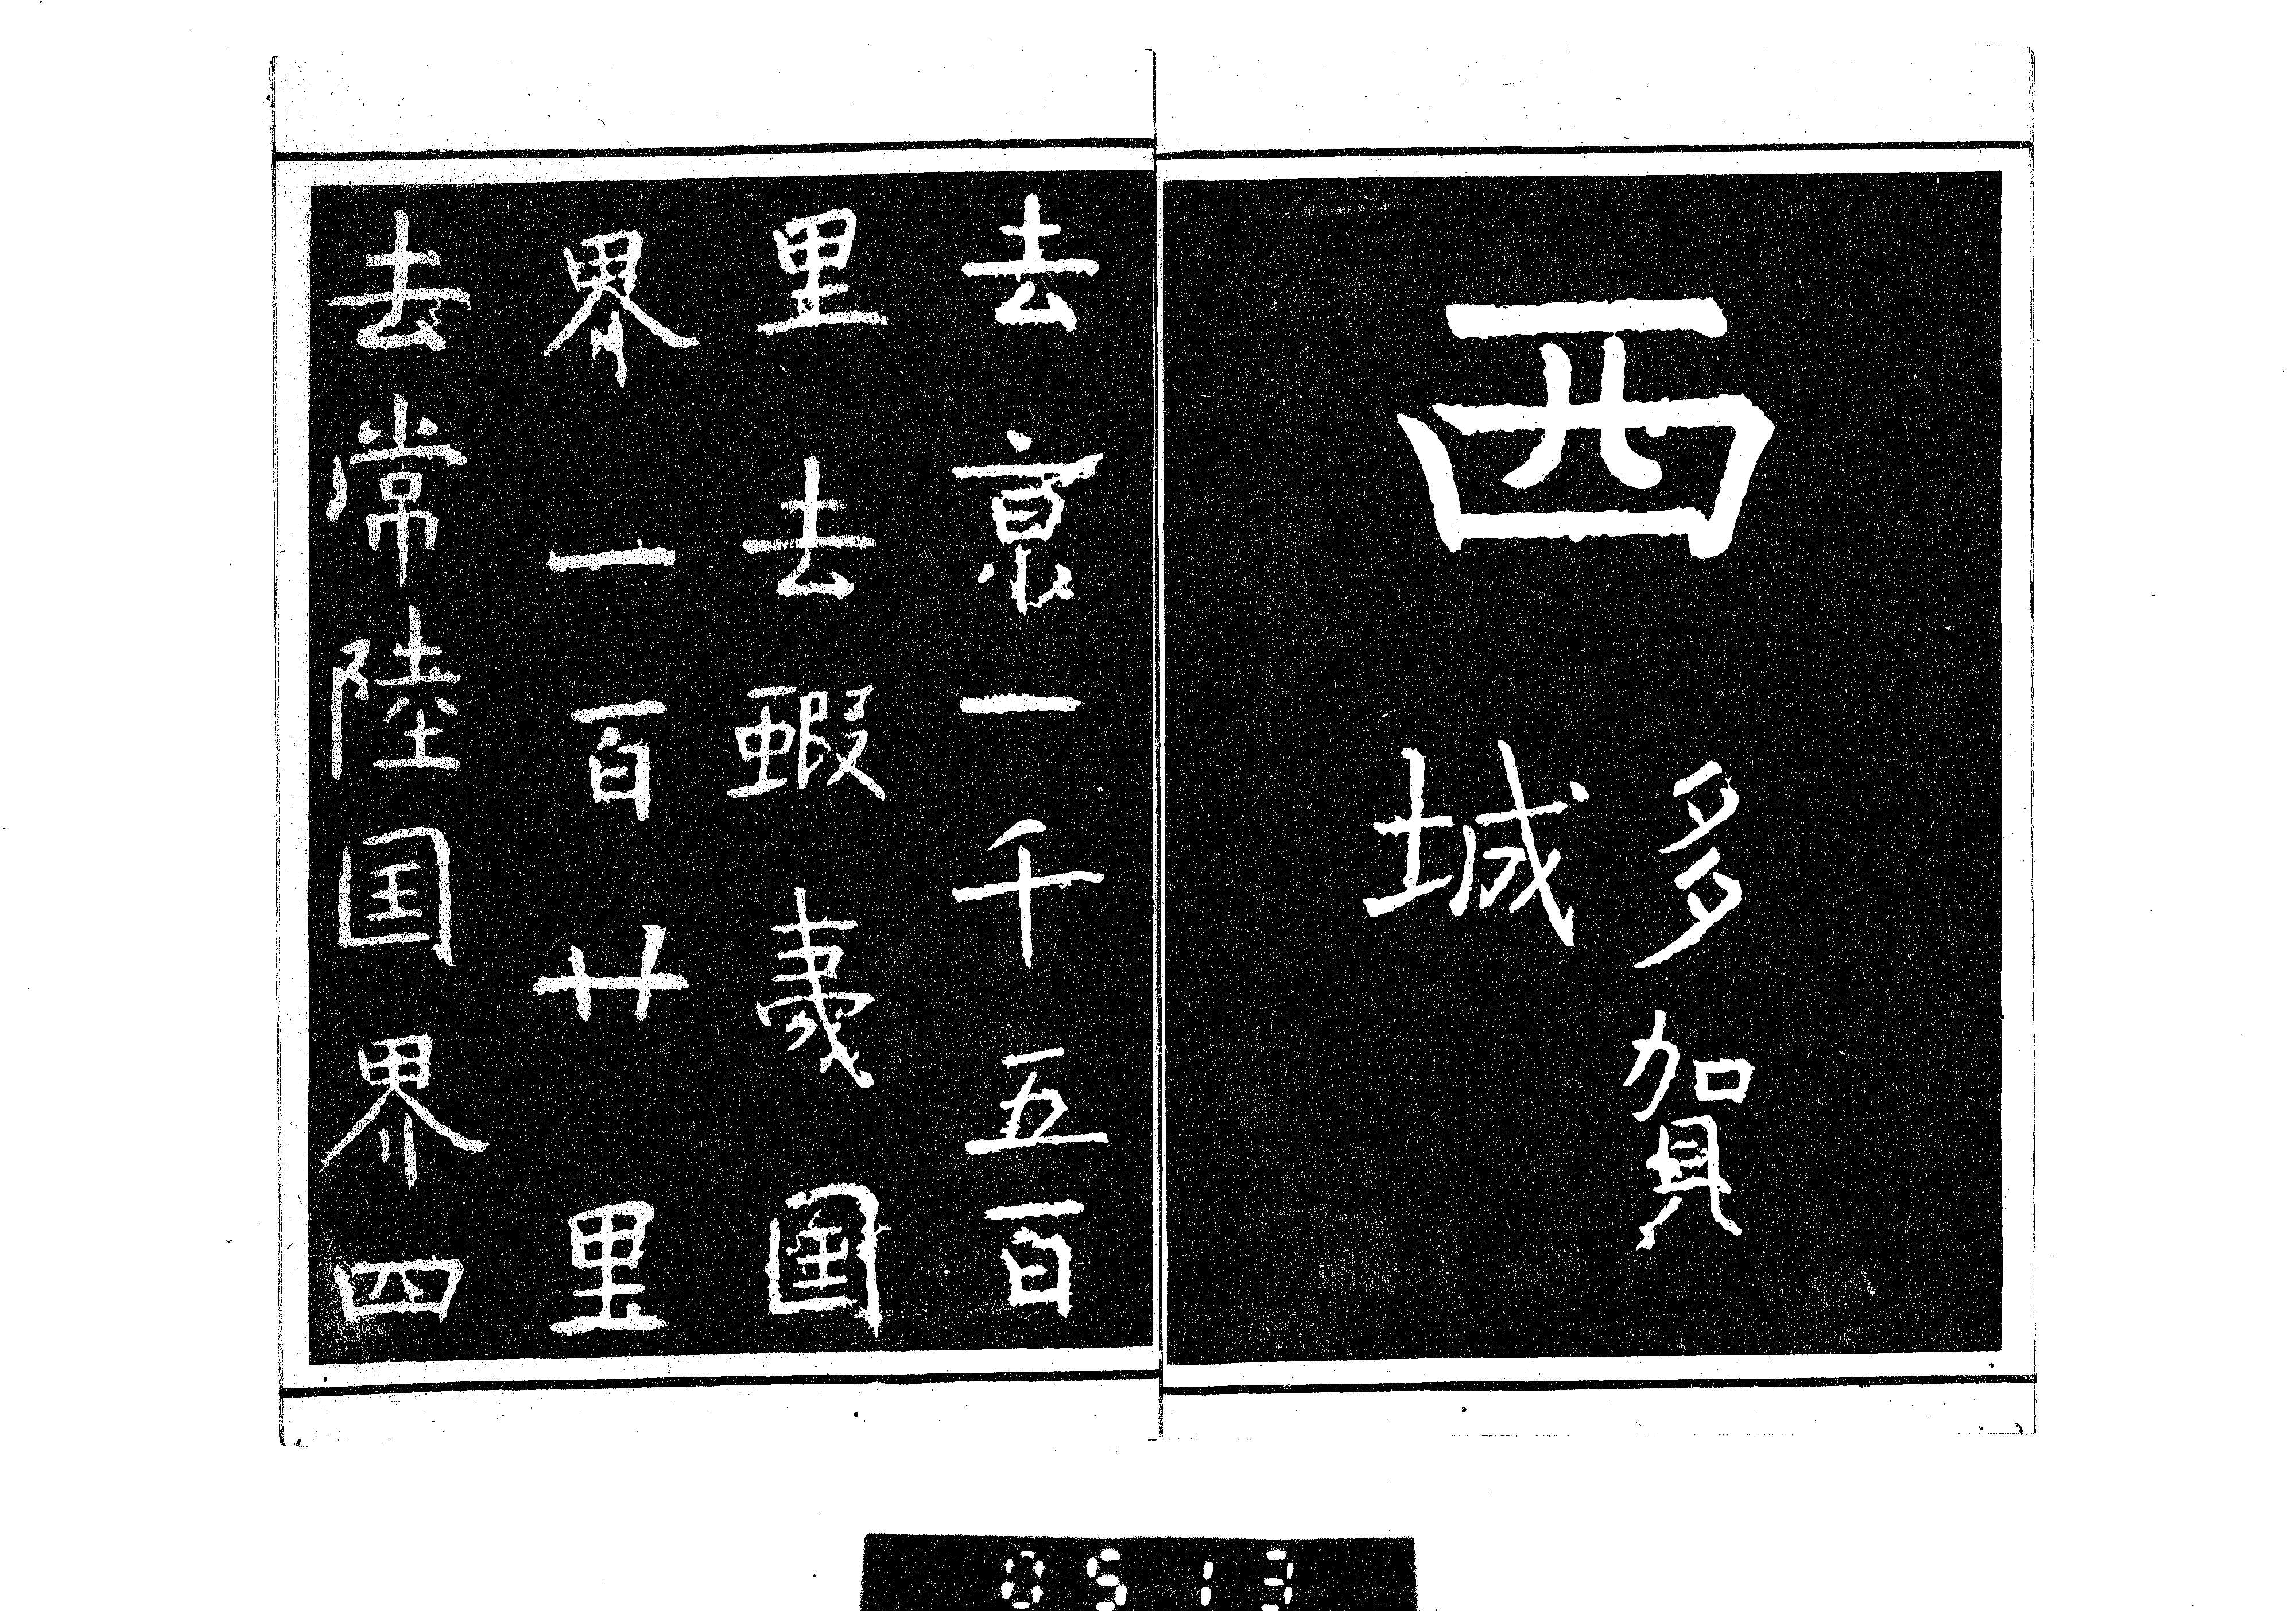 西
多賀
城
去京一千五百
里去蝦夷国
界一百廿里
去常陸国界四
0513